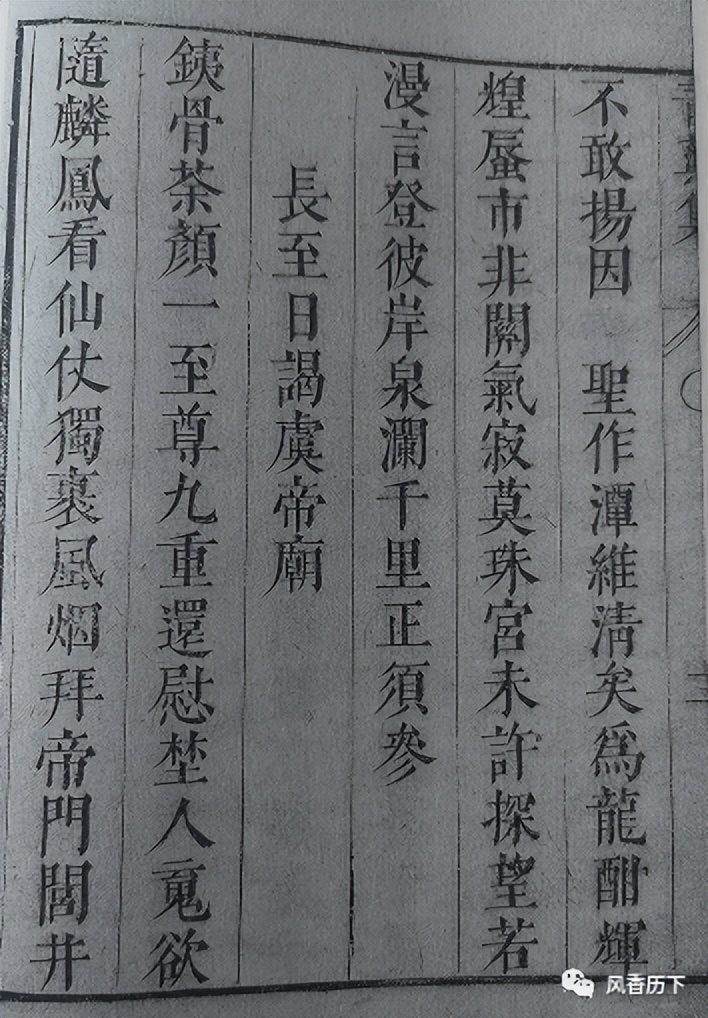 不敢揚因　聖作潭維淸矣爲龍酣輝
煌蜃市非關氣寂莫珠宮未許探望若
漫言登彼岸泉瀾千里正須參
長至日謁虞帝廟
銕骨荼顏一至尊九重還慰埜人䰟欲
隨麟鳳看仙仗獨裹風烟拜帝門閶井
风香历下